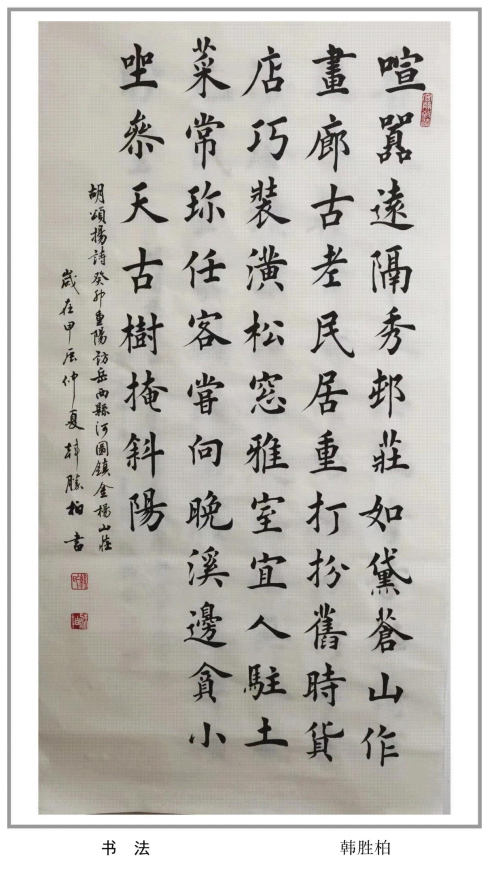 喧囂遠隔秀邨莊如黛蒼山作
畫廊古老民居重打扮舊時貨
店巧裝潢松窓雅室宜人駐土
菜常珎任客嘗向晚溪邊貪小
坐叅天古樹掩斜陽
胡頌揚詩癸卯重陽訪岳西縣河圖鎮金楊山莊
歲在甲辰仲夏韓勝柏書
书 法 韩胜柏